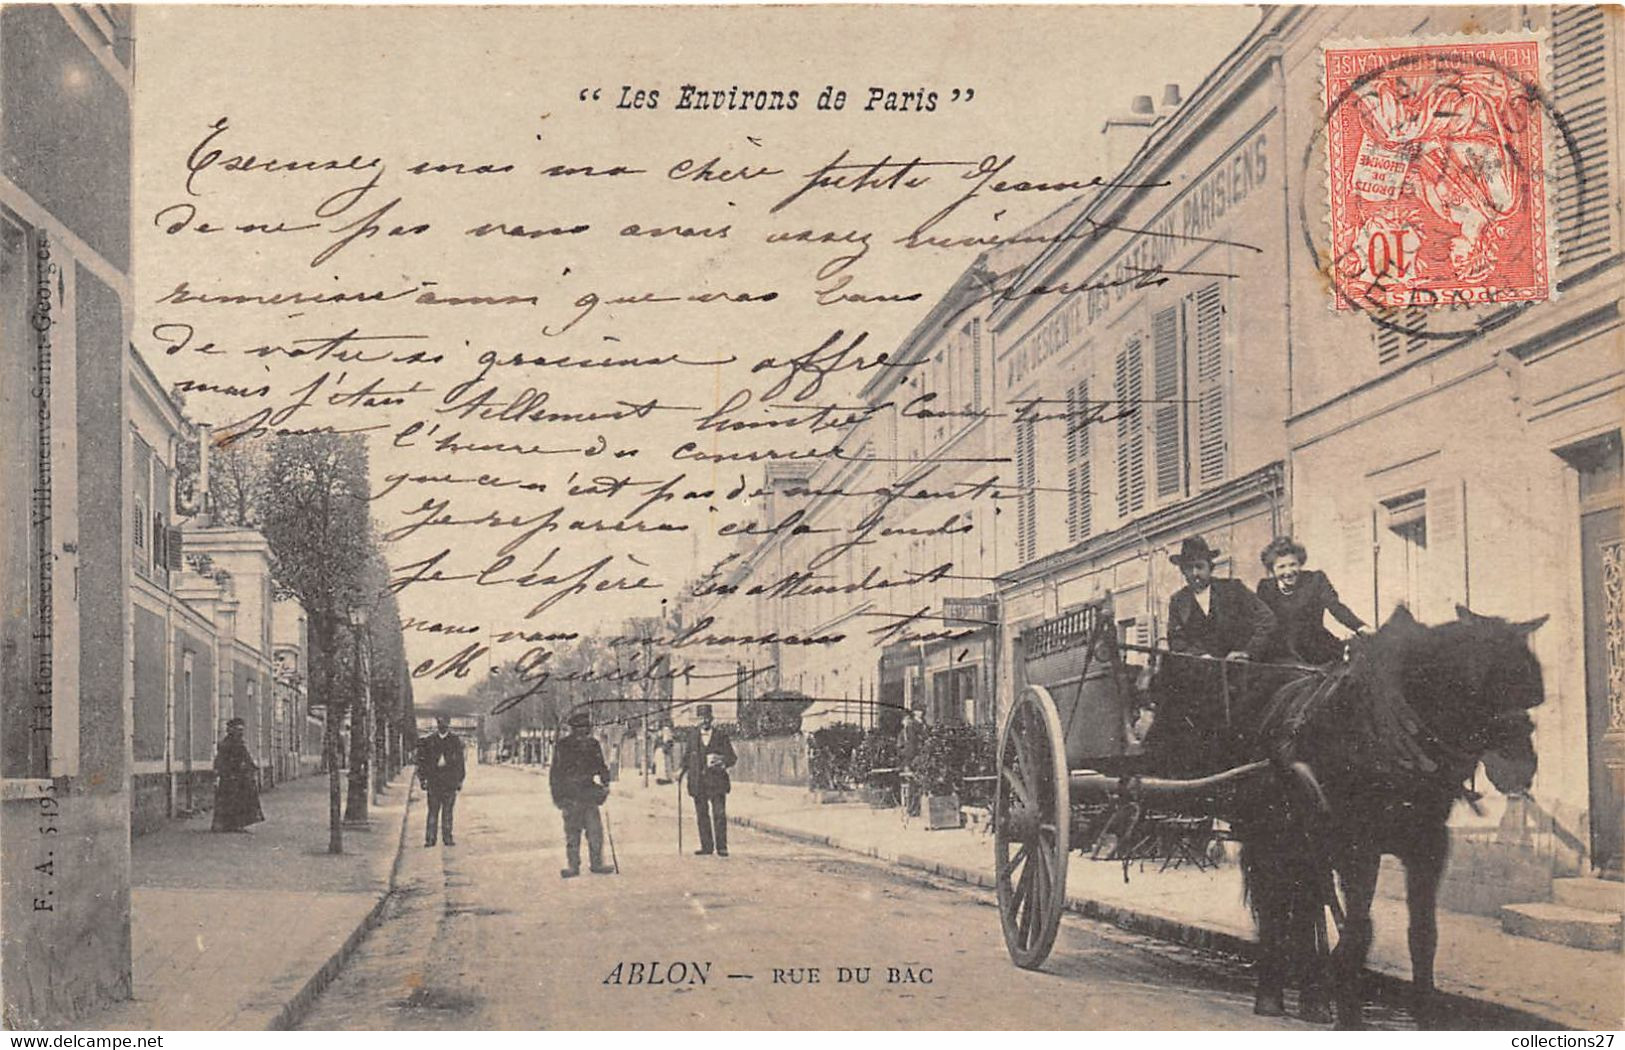 “ Les Environs de Paris ”
Excusez moi ma chère petite Jeanne
de ne pas vous avoir assez vivement
remercier ainsi que vos bons parents
de votre si gracieuse offre,
mais j'étais tellement limitée comme temps
pour l'heure du courrier
que ce n'est pas de ma faute
Je reparerai cela Jeudi
Je l'éspère. En attendant
nous vous embrassons tous
M.
A LA DESCENTE DES GATEAUX PARISIENS
REPVBLIQUE FRANÇAISE
DROITS
DE
L'HOMME
10
POSTES
F. A. 5195. — Edition Lasseray Villeneuve-Saint-Georges
ABLON — RUE DU BAC
collections27